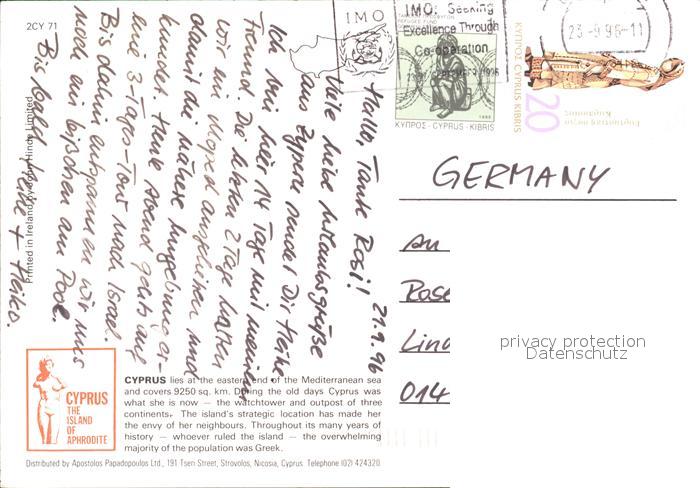 2CY 71
Printed in Ireland by John Hinde Limited
IMO
IMO: Seeking
Excellence Through
Co-operation
1996
ΚΥΠΡΟΣ - CYPRUS - KIBRIS
ΚΥΠΡΟΣ CYPRUS KIBRIS
20
23-9-96-11
21.9.96
Hallo, Tante Rosi!
Viele liebe Urlaubsgrüße
aus Zypern sendet Dir Heike.
Ich bin hier 14 Tage mit meinem
Freund. Die letzten 2 Tage hatten
wir ein Moped ausgeliehen und
damit die nähere Umgebung er-
kundet. Heute Abend geht's auf
eine 3-Tages-Tour nach Israel.
Bis dahin entspannen wir uns
noch ein bißchen am Pool.
Bis bald! Heike + Heiko.
GERMANY
An
Rose
Lind
014
privacy protection
Datenschutz
CYPRUS
THE
ISLAND
OF
APHRODITE
CYPRUS lies at the eastern end of the Mediterranean sea
and covers 9250 sq. km. During the old days Cyprus was
what she is now — the watchtower and outpost of three
continents. The island's strategic location has made her
the envy of her neighbours. Throughout its many years of
history — whoever ruled the island — the overwhelming
majority of the population was Greek.
Distributed by Apostolos Papadopoulos Ltd., 191 Tsen Street, Strovolos, Nicosia, Cyprus. Telephone (02) 424320.